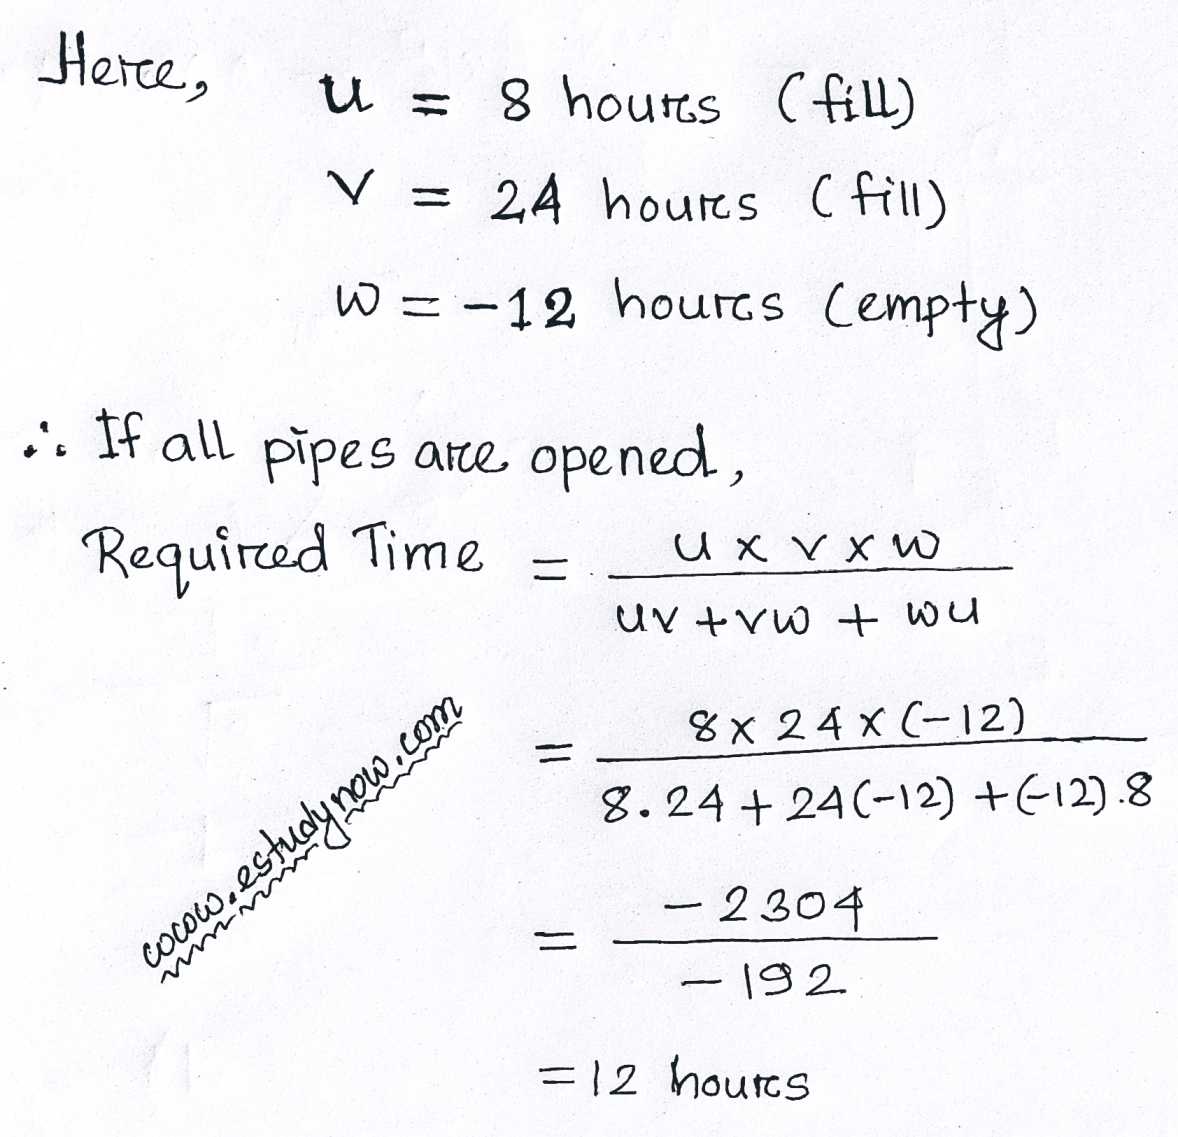 Here,
u = 8 hours (fill)
v = 24 hours (fill)
w = -12 hours (empty)
∴ If all pipes are opened,
Required Time = u x v x w
uv + vw + wu
= 8 x 24 x (-12)
8.24 + 24(-12) + (-12).8
= -2304
-192
= 12 hours
www.estudynow.com